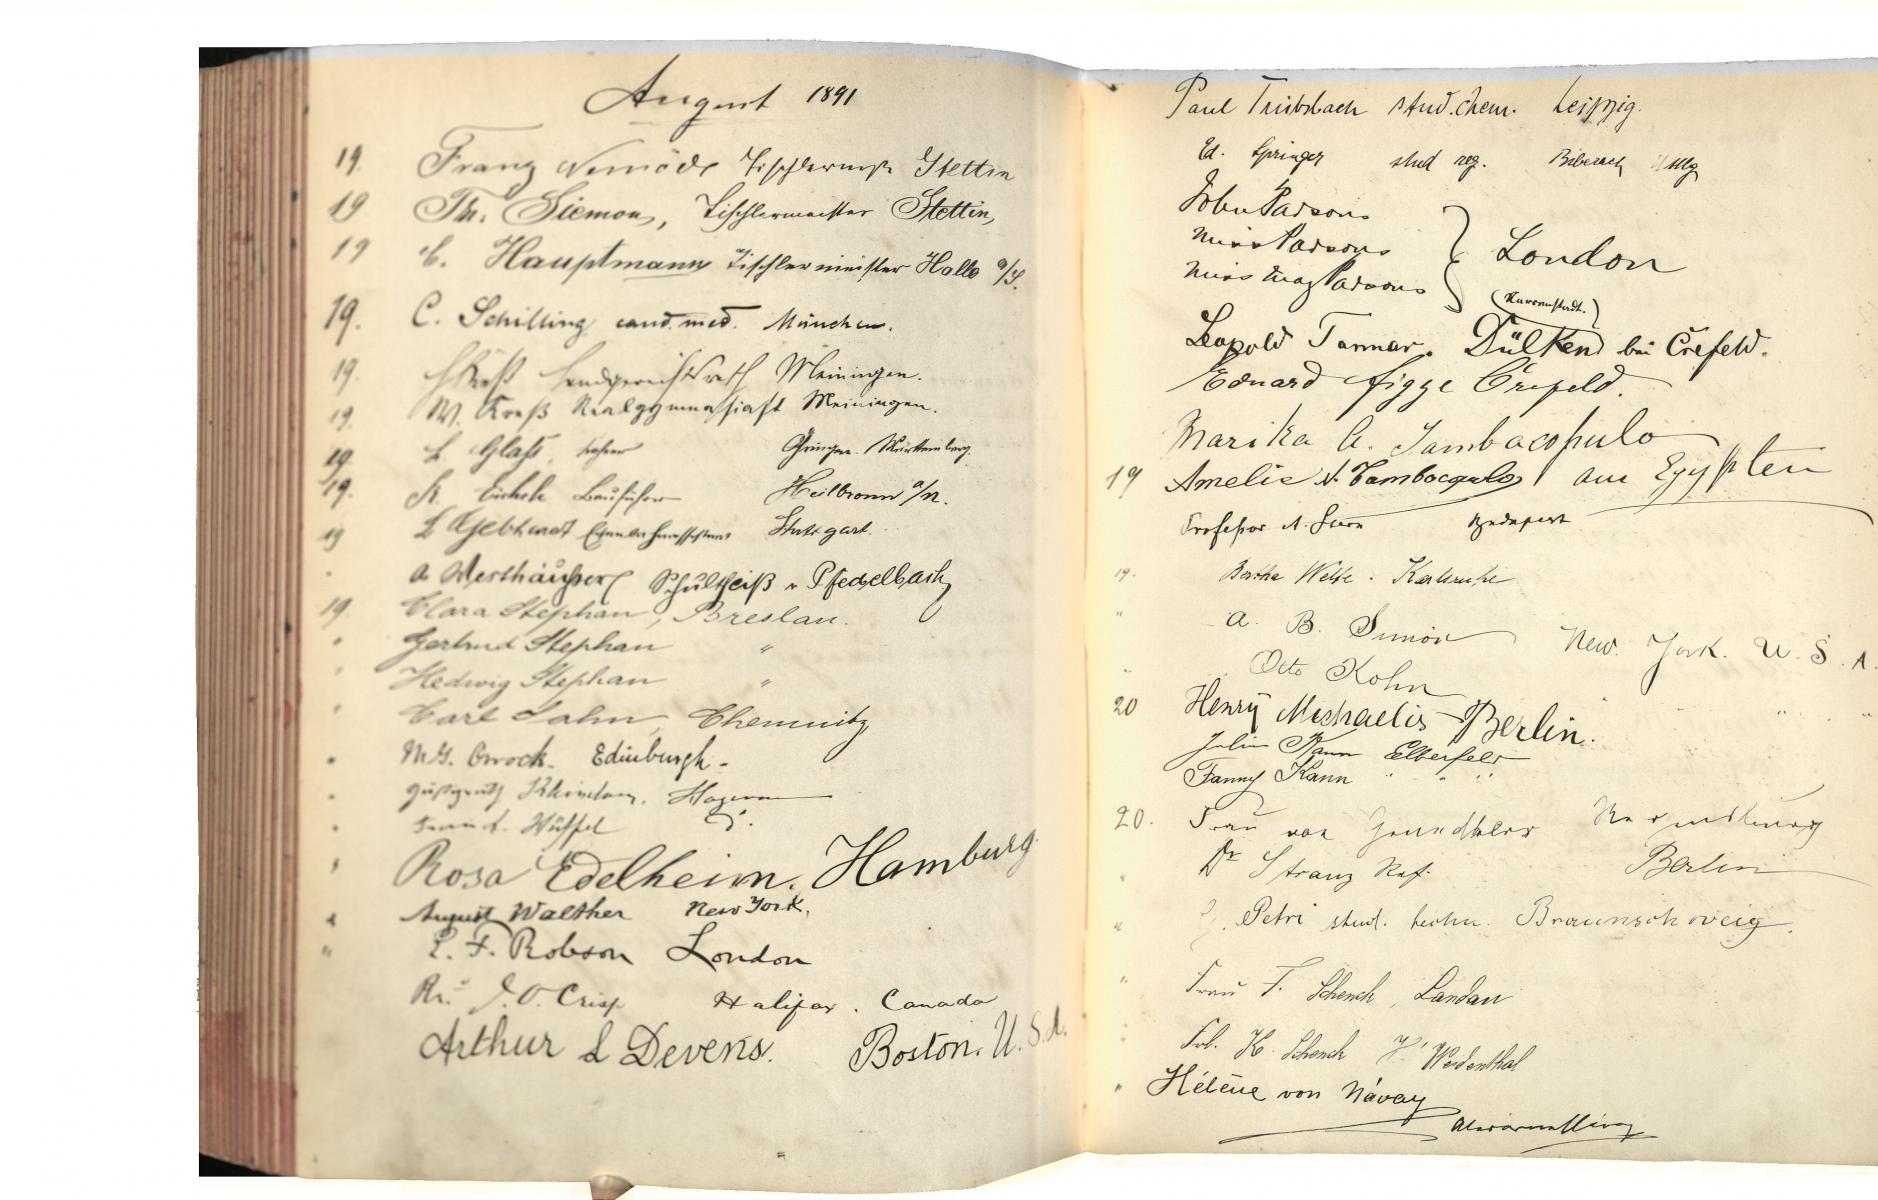 August 1891
19. Franz Tischlermstr Stettin
19 Th. Siemon, Tischlermeister Stettin,
19 C. Hauptmann Tischlermeister Halle a/S.
19. C. Schilling cand. med. München.
19. Landgerichtsrath Meiningen.
19. W. Kreß Realgymnasiast Meiningen.
19. L. Glaß, Württemberg.
19. K. Bauführer Heilbronn a/N.
19 L Gebhardt Stuttgart.
A Westhäußer Schultheiß v Pfedelbach
19. Clara Stephan, Breslau.
" Gertrud Stephan "
" Hedwig Stephan "
" Carl Jahn, Chemnitz
" M.G. Orrock. Edinburgh.
Hagen
Rosa Edelheim. Hamburg.
August Walther New York.
" E. F. Robson London
J. O. Crisp Halifax. Canada
Arthur L Devens. Boston. U.S.A.
Paul stud. chem. Leipzig.
Ed. Springer stud reg. Biberach
John Parsons
Miss Parsons
Miss May Parsons
London
Leopold Tanmar. Dülken bei Crefeld.
Eduard Figge Crefeld.
Marika A. Tambacopulo
19 Amelie N. Tambacopulo aus Egypten
Professor A. Budapest
19. Bertha Welte. Karlsruhe
" A. B. Simon New York. U. S. A.
" Otto Kohn " " "
20 Henry Michaelis Berlin.
Julius Kann Elberfeld
Fanny Kann " " "
20. Frau von
" Dr Stranz Ref. Berlin
" Petri stud. techn. Braunschweig.
" Frau F. Schenck, Landau
Frl. K. Schenck Weidenthal
" Hélène von Návay